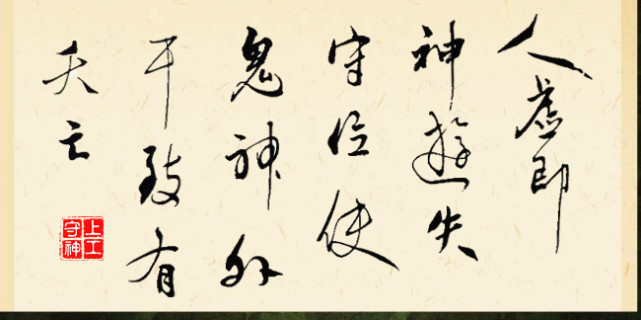 人虚即
神游失
守位使
鬼神外
干致有
夭亡
上工
守神